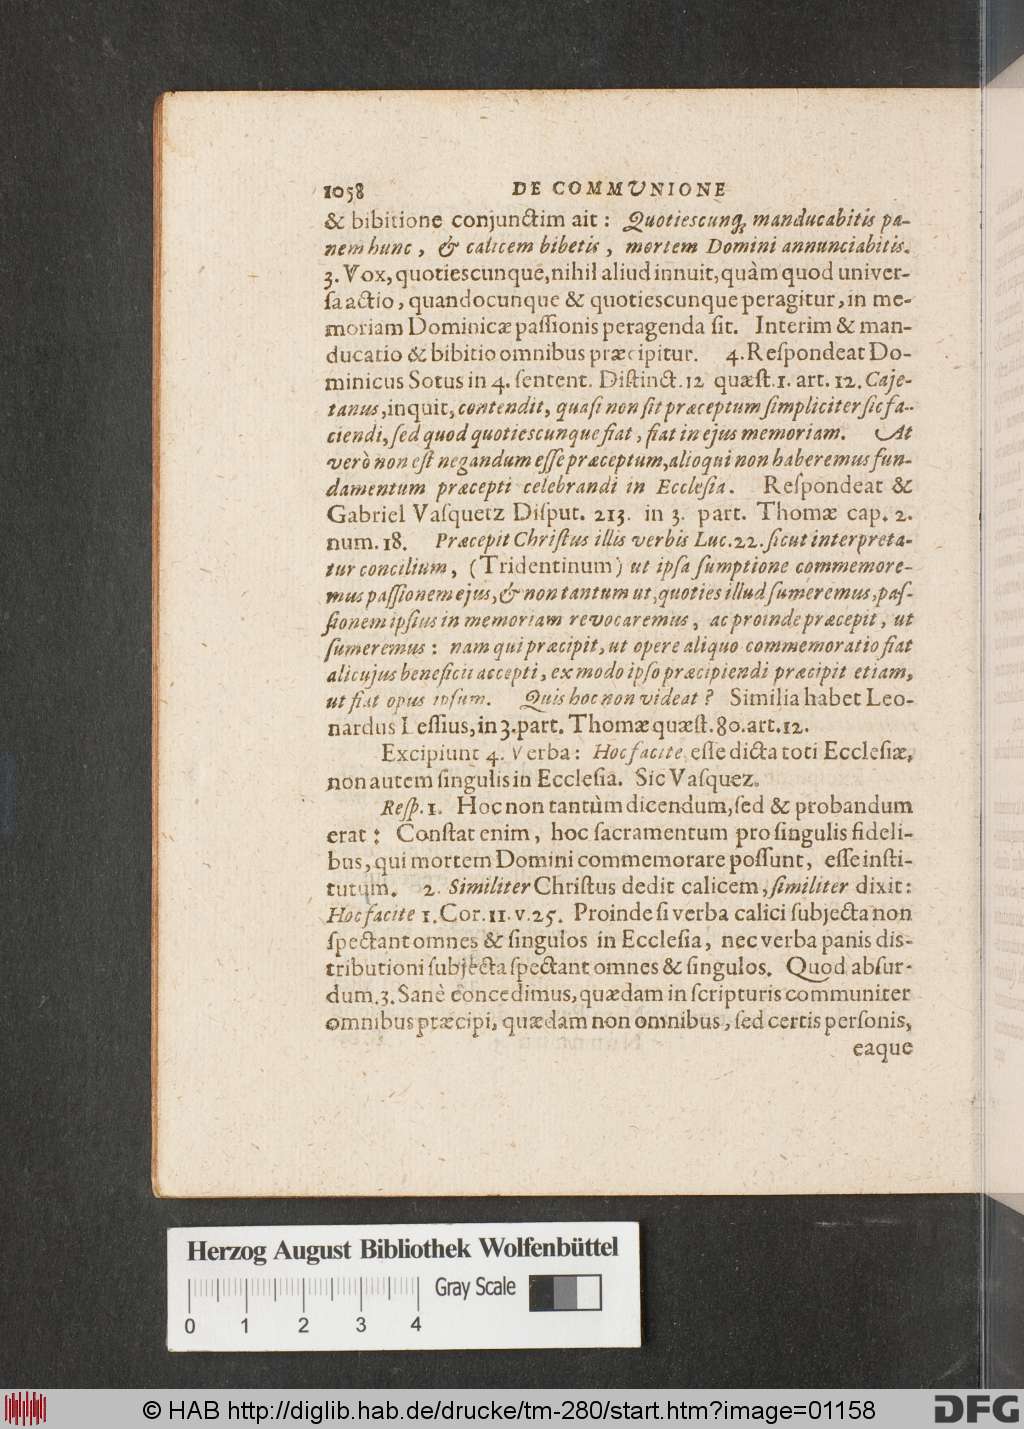 1058 DE COMMVNIONE
& bibitione conjunctim ait: Quotiescunq; manducabitis pa-
nem hunc, & calicem bibetis, mortem Domini annunciabitis.
3. Vox, quotiescunque, nihil aliud innuit, quàm quod univer-
ſa actio, quandocunque & quotiescunque peragitur, in me-
moriam Dominicæ paſſionis peragenda ſit. Interim & man-
ducatio & bibitio omnibus præcipitur. 4. Reſpondeat Do-
minicus Sotus in 4. ſentent. Diſtinct. 12 quæſt. 1. art. 12. Caje-
tanus, inquit, contendit, quaſi non ſit præceptum ſimpliciter ſic fa-
ciendi, ſed quod quotiescunque fiat, fiat in ejus memoriam. At
verò non eſt negandum eſſe præceptum, alioqui non haberemus fun-
damentum præcepti celebrandi in Eccleſia. Reſpondeat &
Gabriel Vaſquetz Diſput. 213. in 3. part. Thomæ cap. 2.
num. 18. Præcepit Chriſtus illis verbis Luc. 22. ſicut interpreta-
tur concilium, (Tridentinum) ut ipſa ſumptione commemore-
mus paſſionem ejus, & non tantum ut, quoties illud ſumeremus, paſ-
ſionem ipſius in memoriam revocaremus, ac proinde præcepit, ut
ſumeremus: nam qui præcipit, ut opere aliquo commemoratio fiat
alicujus beneficii accepti, ex modo ipſo præcipiendi præcipit etiam,
ut fiat opus ipſum. Quis hoc non videat? Similia habet Leo-
nardus Leſſius, in 3. part. Thomæ quæſt. 80. art. 12.
Excipiunt 4. Verba: Hoc facite eſſe dicta toti Eccleſiæ,
non autem ſingulis in Eccleſia. Sic Vaſquez.
Reſp. 1. Hoc non tantùm dicendum, ſed & probandum
erat: Conſtat enim, hoc ſacramentum pro ſingulis fideli-
bus, qui mortem Domini commemorare poſſunt, eſſe inſti-
tutum. 2. Similiter Chriſtus dedit calicem, ſimiliter dixit:
Hoc facite 1. Cor. 11. v. 25. Proinde ſi verba calici ſubjecta non
ſpectant omnes & ſingulos in Eccleſia, nec verba panis dis-
tributioni ſubjecta ſpectant omnes & ſingulos. Quod abſur-
dum. 3. Sanè concedimus, quædam in ſcripturis communiter
omnibus præcipi, quædam non omnibus, ſed certis perſonis,
eaque
Herzog August Bibliothek Wolfenbüttel
Gray Scale
0 1 2 3 4
© HAB http://diglib.hab.de/drucke/tm-280/start.htm?image=01158
DFG